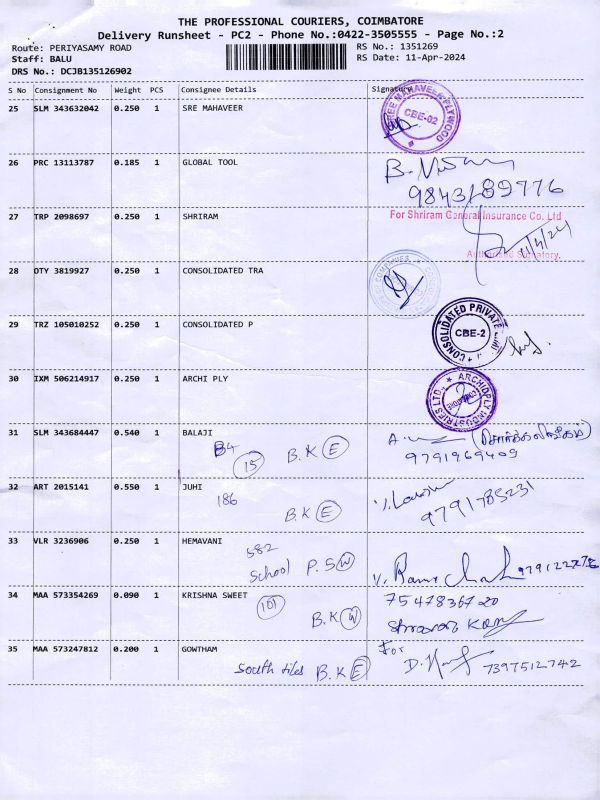 THE PROFESSIONAL COURIERS, COIMBATORE
Delivery Runsheet - PC2 - Phone No.:0422-3505555 - Page No.:2
Route: PERIYASAMY ROAD
RS No.: 1351269
Staff: BALU
RS Date: 11-Apr-2024
DRS No.: DCJB135126902
S No Consignment No Weight PCS Consignee Details Signature
25 SLM 343632042 0.250 1 SRE MAHAVEER
SREE MAHAVEER PLYWOOD
CBE-02
26 PRC 13113787 0.185 1 GLOBAL TOOL
B.
9843189776
27 TRP 2098697 0.250 1 SHRIRAM
For Shriram General Insurance Co. Ltd
11/4/24
Authorised Signatory.
28 DTY 3819927 0.250 1 CONSOLIDATED TRA
29 TRZ 105010252 0.250 1 CONSOLIDATED P
CONSOLIDATED PRIVATE
CBE-2
30 IXM 506214917 0.250 1 ARCHI PLY
ARCHIDPLY INDUSTRIES LTD.
31 SLM 343684447 0.540 1 BALAJI
84
15 B.K E
9791969409
32 ART 2015141 0.550 1 JUHI
186
B.K E
9791785231
33 VLR 3236906 0.250 1 HEMAVANI
582
School P.S W
34 MAA 573354269 0.090 1 KRISHNA SWEET
101
7547836720
B.K W
35 MAA 573247812 0.200 1 GOWTHAM
For
South tiles B.K E
7397512742